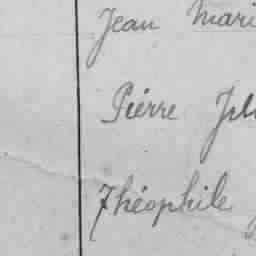 Jean Mari
Pierre
Théophile